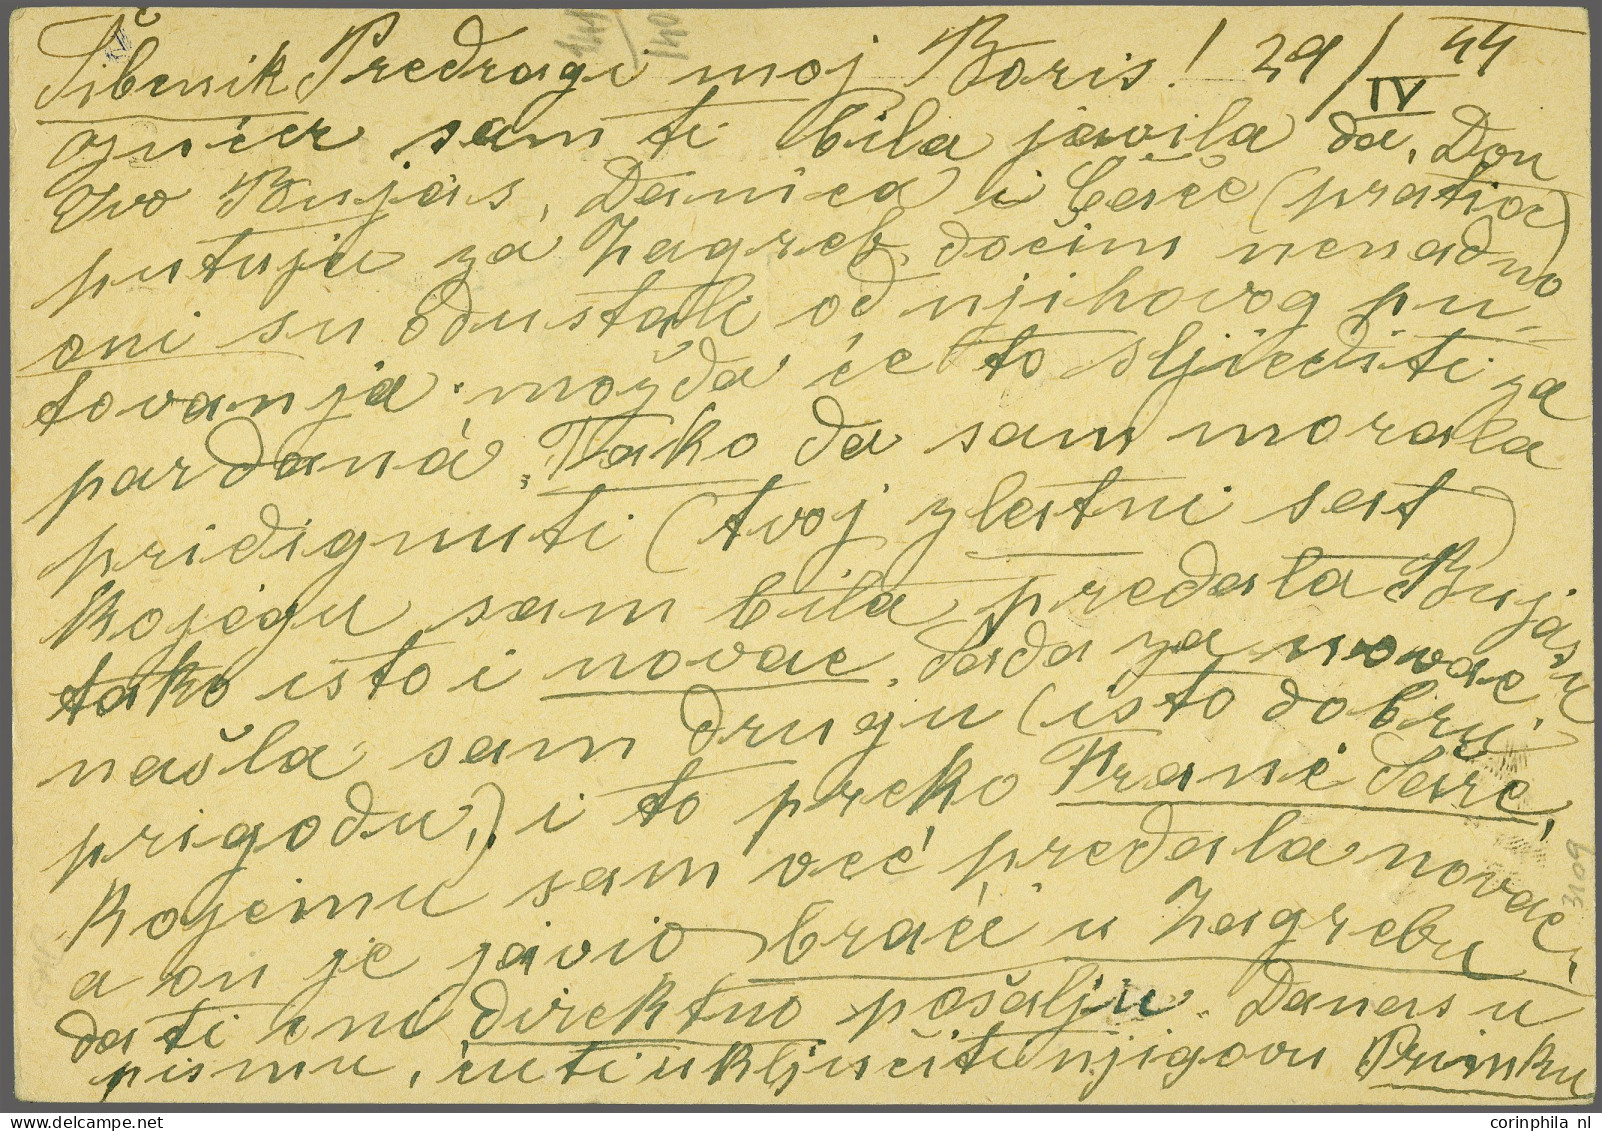 Šibenik Predragi moj Boris! 29/IV 44
ojučer sam ti bila javila da, Don
Ivo Bujas, Danica i Ćeść (pratioc)
putuju za Zagreb, dočim nenadno
oni su odustali od njihovog pu-
tovanja možda će to sljediti za
pardana. Tako da sam morala
pridignuti (tvoj zlatni sat)
kojegu sam bila predala Bujasu
tako isto i novac. Sada za novac
našla sam drugu (isto dobru
prigodu,) i to preko Frane
kojemu sam već predala novac,
a on je javio braći u Zagrebu
da ti oni direktno pošalju. Danas u
pismu, ću ti uključiti njigovu Primku
corinphila nl